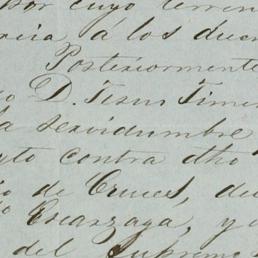 por cuyo terren
á los due
Posteriormente
D. Jesus Jime
a servidumbre
to contra dho
de Cruces, de
Escarzaga, y
del Supremo